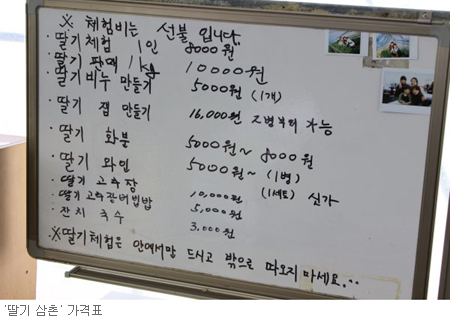 ※ 체험비는 선불 입니다
· 딸기체험 1인 8000원
딸기 판매 1kg 10000원
· 딸기비누 만들기 5000원 (1개)
· 딸기 잼 만들기 16,000원 2병부터 가능
· 딸기 화분 5000원~ 8000원
· 딸기 와인 5000원~ (1병)
· 딸기 고추장 10,000원 (1세트)
· 딸기 고추장비빔밥 5,000원
· 잔치 국수 3,000원
※딸기체험은 안에서만 드시고 밖으로 따오지마세요...
'딸기 삼촌' 가격표